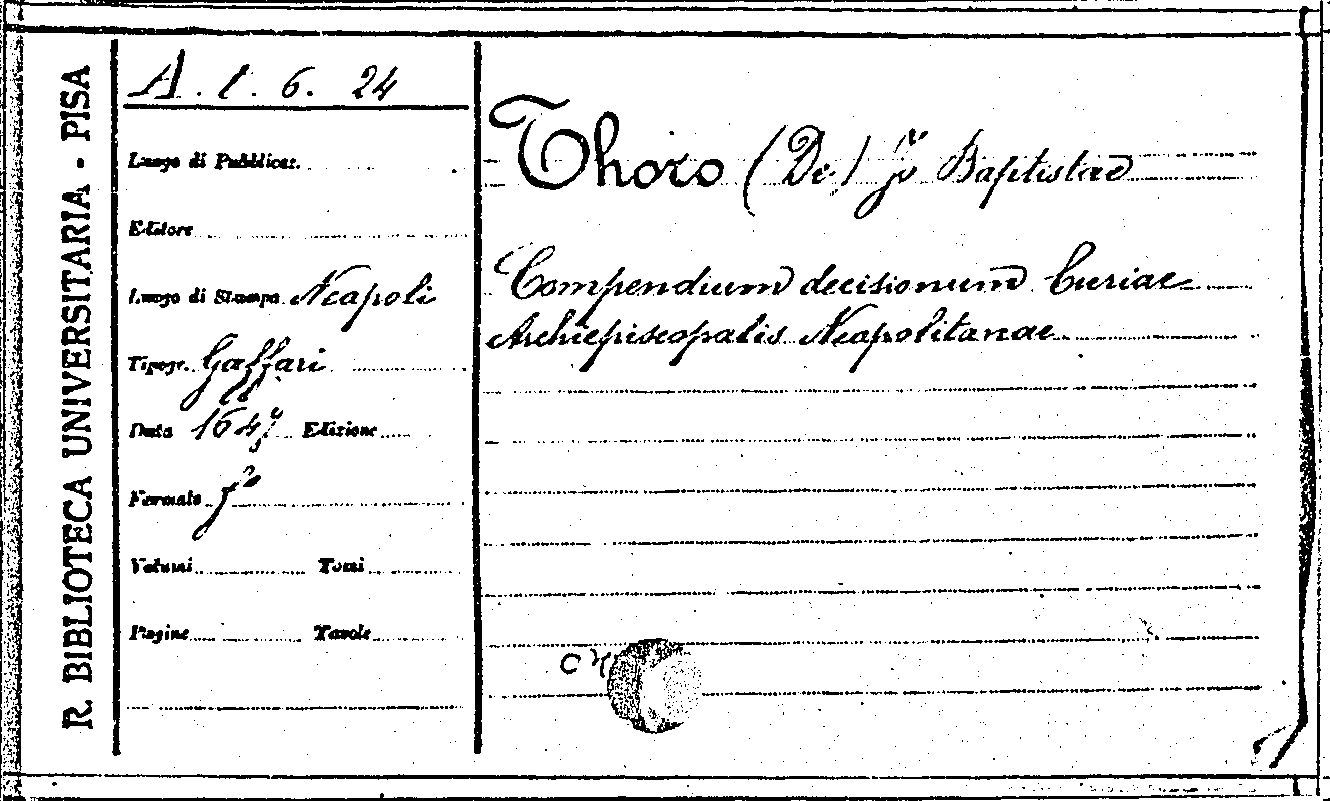 R. BIBLIOTECA UNIVERSITARIA - PISA
A. l. 6. 24
Luogo di Pubblicaz.
Editore
Luogo di Stampa Neapoli
Tipogr. Gaffari
Data 1647 Edizione
Formato fº
Volumi Tomi
Pagine Tavole
Thoro (De) Jo Baptistae
Compendium decisionum Curiae
Archiepiscopalis Neapolitanae